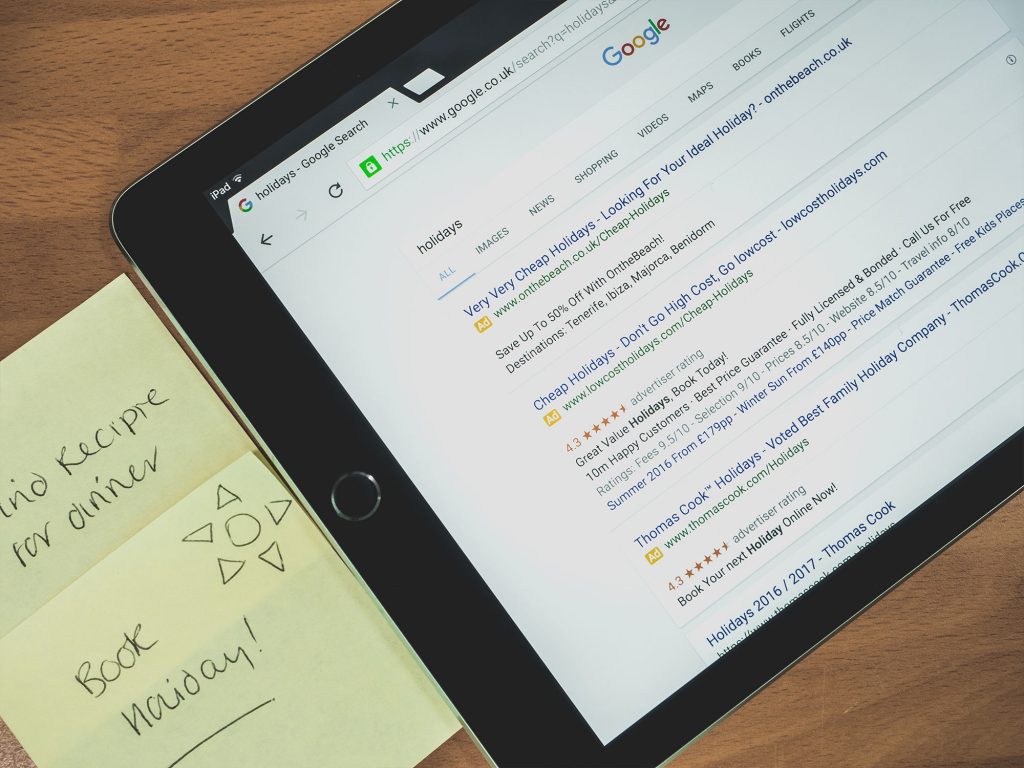 iPad
holidays - Google Search
https://www.google.co.uk/search?q=holidays
Google
holidays
ALL IMAGES NEWS SHOPPING VIDEOS MAPS BOOKS FLIGHTS
Very Very Cheap Holidays - Looking For Your Ideal Holiday? - onthebeach.co.uk
Ad www.onthebeach.co.uk/Cheap-Holidays
Save Up To 50% Off With OntheBeach!
Destinations: Tenerife, Ibiza, Majorca, Benidorm
Cheap Holidays - Don't Go High Cost, Go lowcost - lowcostholidays.com
Ad www.lowcostholidays.com/Cheap-Holidays
4.3 ★★★★★ advertiser rating
Great Value Holidays, Book Today!
10m Happy Customers - Best Price Guarantee · Fully Licensed & Bonded · Call Us For Free
Ratings: Fees 9.5/10 - Selection 9/10 - Prices 8.5/10 - Website 8.5/10 - Travel info 8/10
Summer 2016 From £179pp - Winter Sun From £140pp - Price Match Guarantee - Free Kids Places
Thomas Cook™ Holidays - Voted Best Family Holiday Company - ThomasCook.
Ad www.thomascook.com/Holidays
4.3 ★★★★★ advertiser rating
Book Your next Holiday Online Now!
Holidays 2016 / 2017 - Thomas Cook
https://www.thomascook.com/holidays
Recipie
for dinner
Book
Holiday!